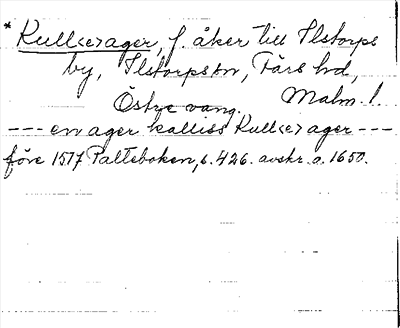 *Kull<e>ager, f. åker till Ilstorps
by, Ilstorps sn, Färs hd,
Östre vang. Malm. l.
--- en ager kalliss Kull<e>ager ---
före 1517 Palteboken, s. 426. avskr. o. 1650.